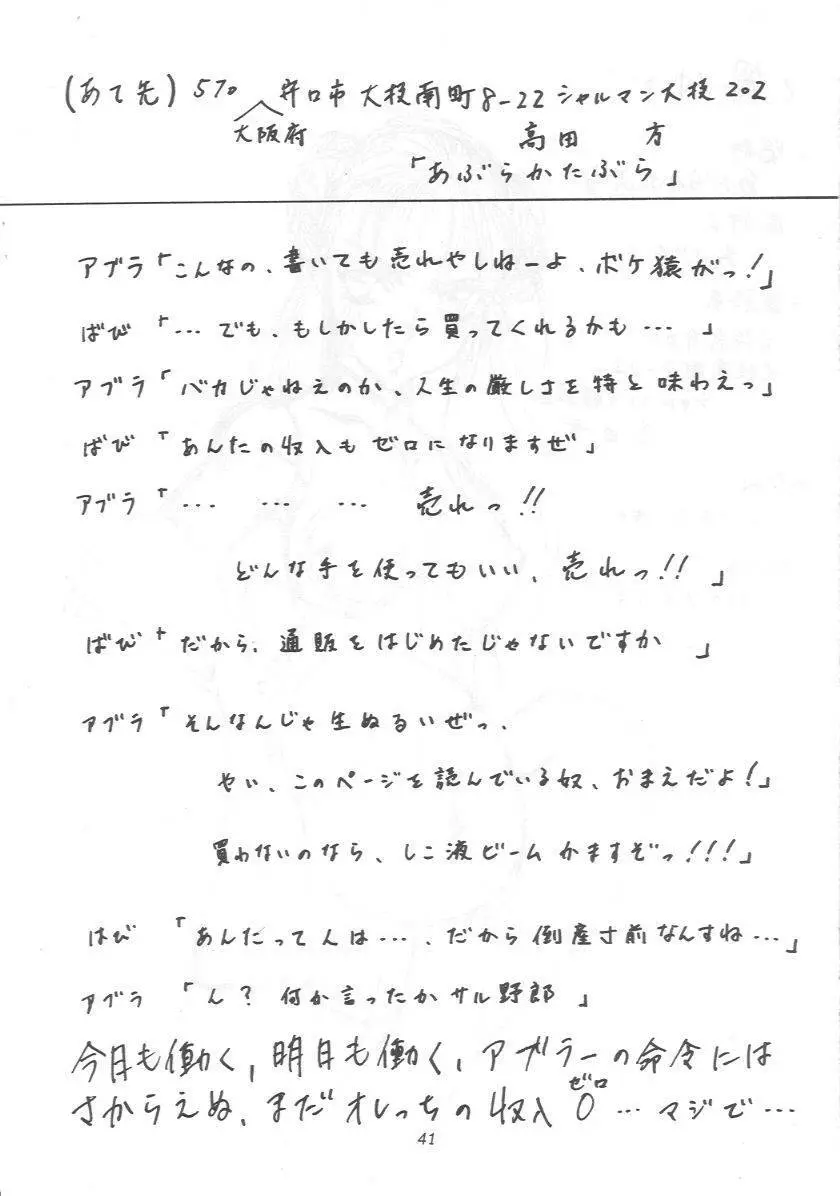 (あて先) 570 守口市大枝南町8-22シャルマン大枝202
大阪府
高田 方
「あぶらかたぶら」
アブラ「こんなの、書いても売れやしねーよ、ボケ猿がっ!」
ばび「… でも、もしかしたら買ってくれるかも … 」
アブラ「バカじゃねえのか、人生の厳しさを特と味わえっ」
ばび「あんたの収入もゼロになりますぜ」
アブラ「… … … 売れっ!!
どんな手を使ってもいい、売れっ!! 」
ばび「だから、通販をはじめたじゃないですか 」
アブラ「そんなんじゃ生ぬるいぜっ、
やい、このページを読んでいる奴、おまえだよ!」
買わないのなら、しこ液ビームかますぞっ!!!」
はび 「あんたって人は…、だから倒産寸前なんすね…」
アブラ 「ん? 何か言ったかサル野郎 」
今日も働く、明日も働く、アブラーの命令には
さからえぬ、まだオレっちの収入0 … マジで…
ゼロ
41